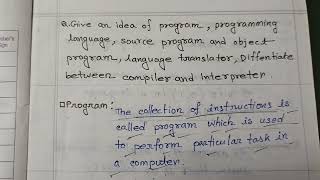 Q. Give an idea of program, programming
language, source program and object
program, language translator, Diffentiate
between compiler and Interpreter
1) Program: The collection of instructions is
called program which is used
to perform particular task in
a computer.